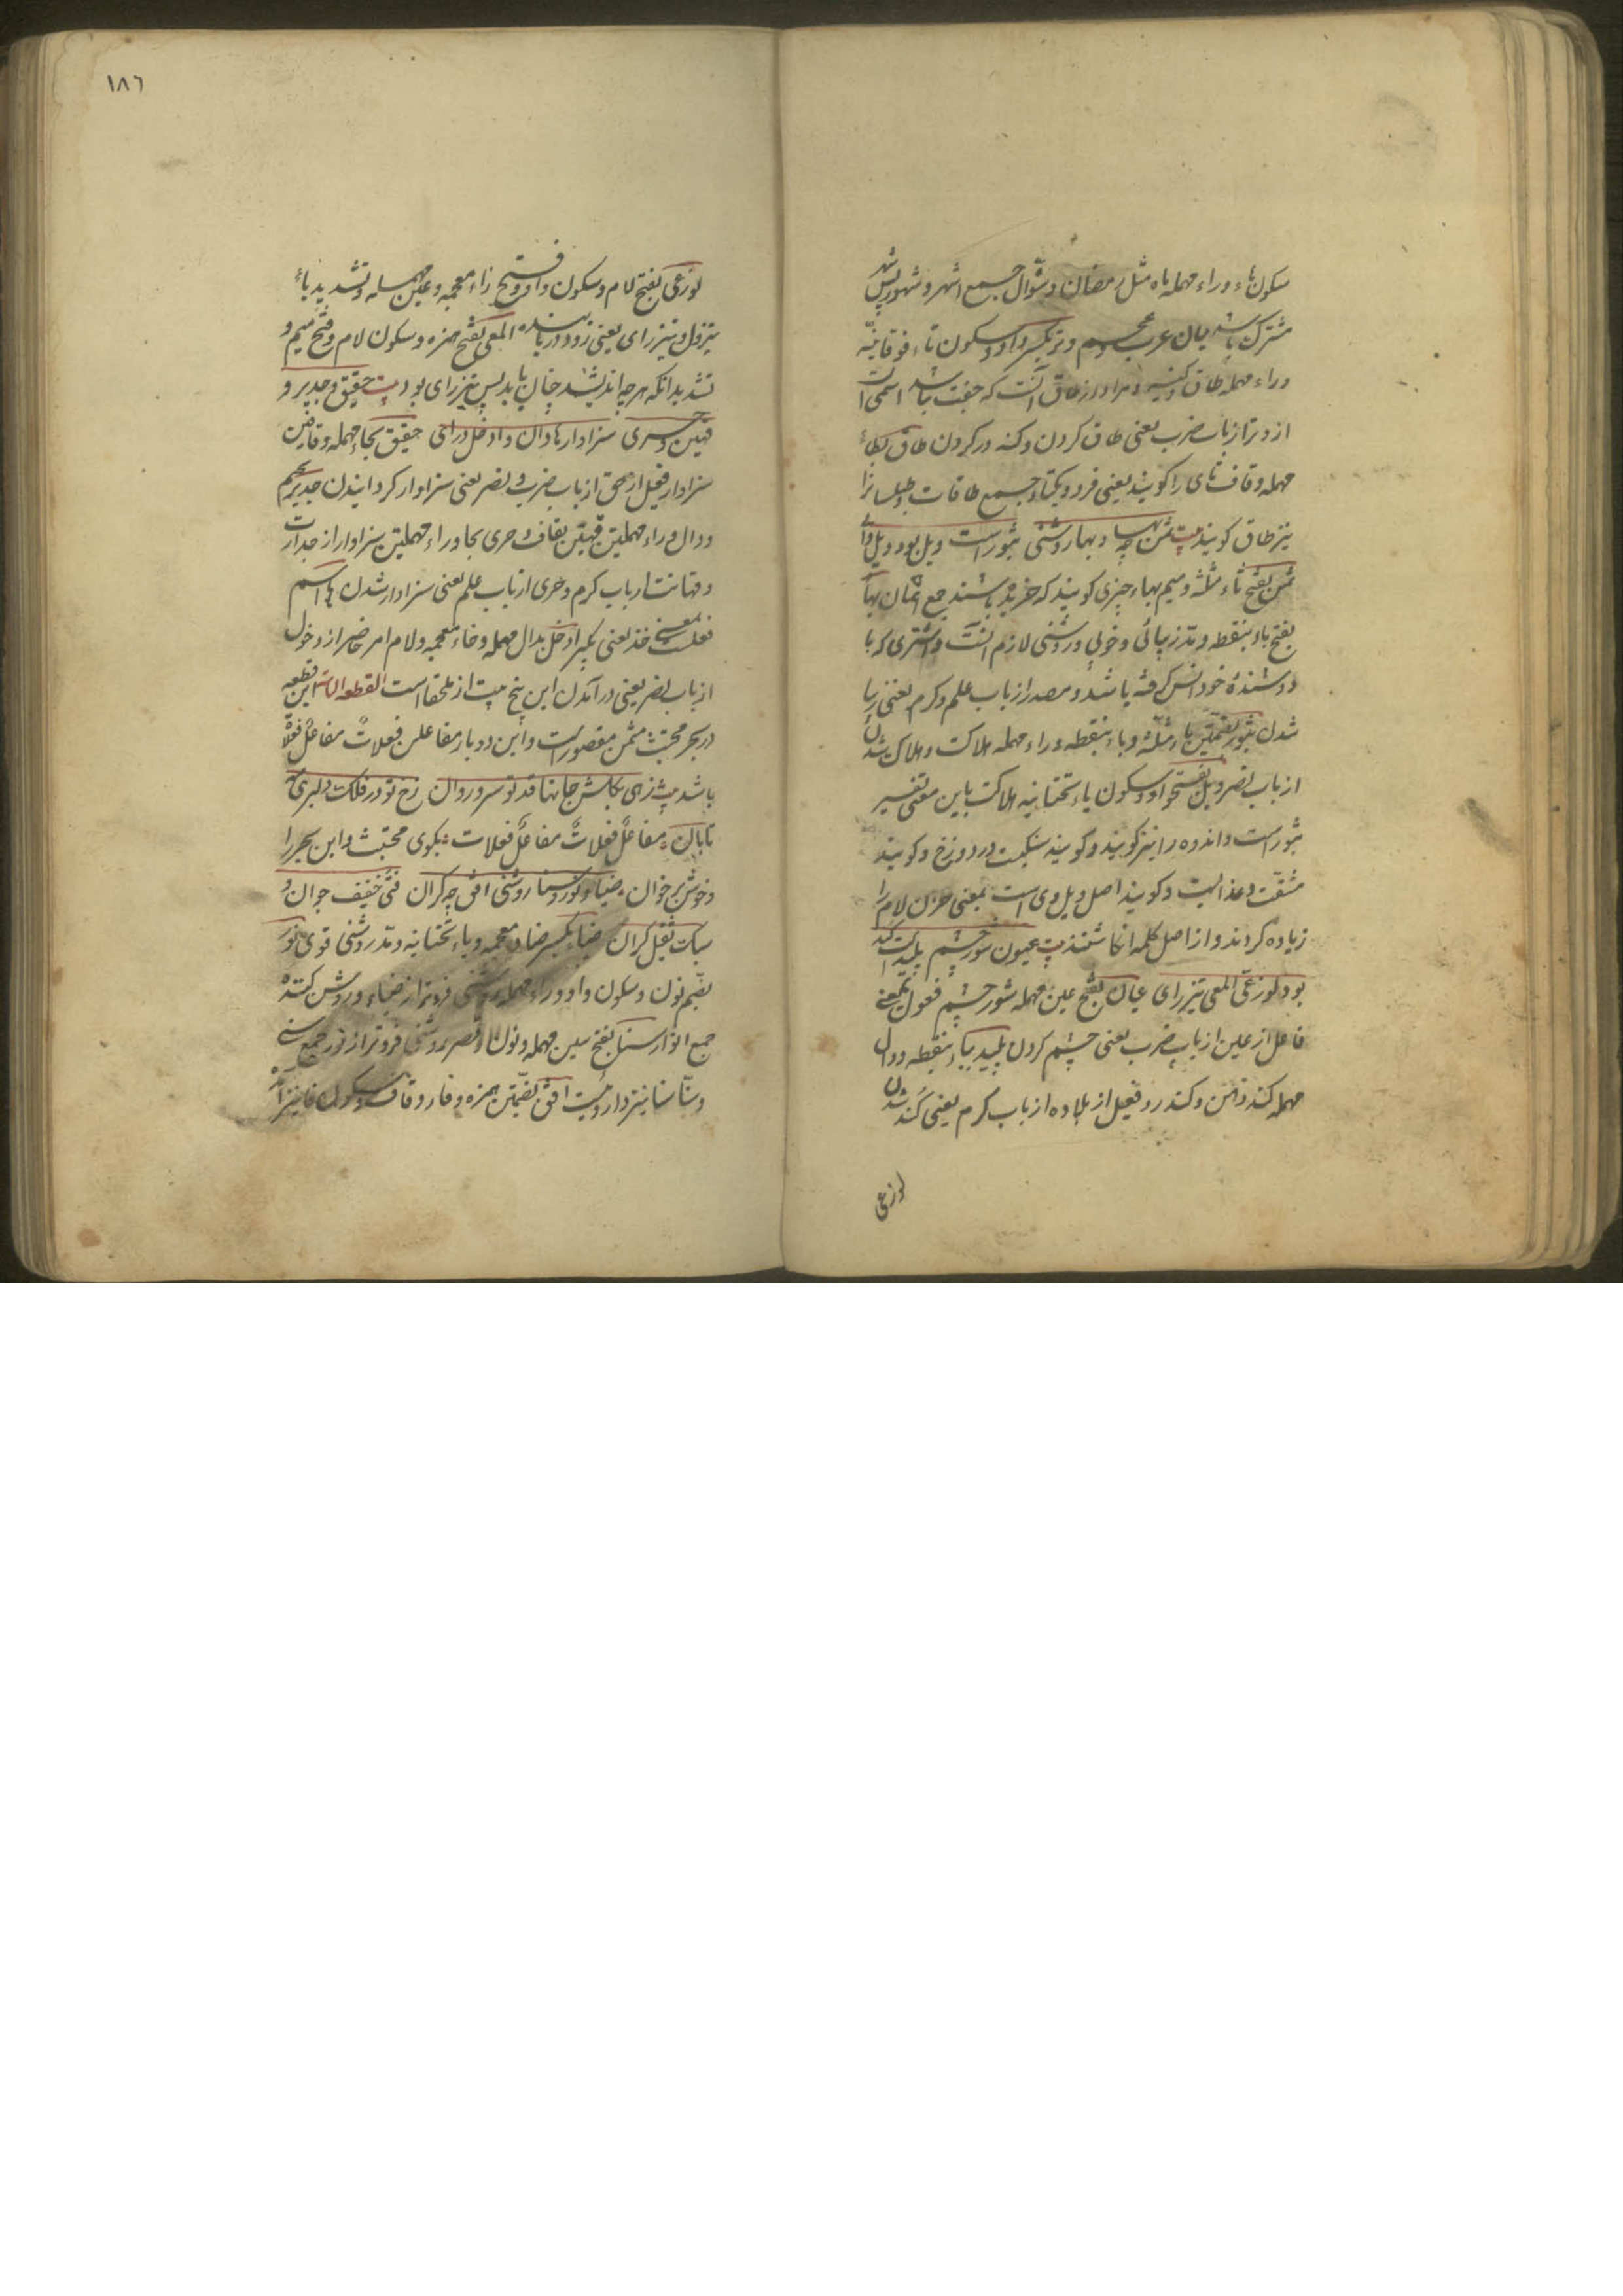 سکون هاء و راء مهمله ماه مثل رمضان و شوال جمع اشهر و شهور پس شهر
مشترک باشد میان عرب و عجم وتر بکسر واو و سکون تاء فوقانیه
وراء مهمله طاق و کینه و مراد از طاق آنست که جفت نباشد اسمی است
از وتر از باب ضرب یعنی طاق کردن و کنه ور کردن طاق بطاء
مهمله و قاف تای را کویند یعنی فرد و یکتا و جمع طاقات و طیلسانرا
نیز طاق کویند بیت ثمن بها چه بها روشنی ثبور است ویل بود ویل وای
ثمن بفتح ثاء مثلثه و میم بهاء چیزی کویند که خریده باشند جمع اثمان بهاء
بفتح باء بنقطه و مد زیبائی و خوبی و روشنی لازم آنست و اشتری که با
دوشندهٔ خود انس کرفته باشد و مصدر از باب علم و کرم یعنی زیبا
شدن ثبور بضمتین ثاء مثلثه و باء بنقطه و راء مهمله هلاکت و هلاک شدن
از باب نصر ویل بفتح واو و سکون یاء تحتانیه هلاکت باین معنی تفسیر
ثبور است و اندوه را نیز کویند و کویند سنکیست در دوزخ و کویند
مشقت و عذابست و کویند اصل ویل وی است بمعنی حزن لام را
زیاده کردند و از اصل کلمه انکاشتند بیت عیون شور چشم بلید است کند
بود لوزعی المعی تیز رای عیان بفتح عین مهمله شور چشم فعول بمعنی
فاعل از عین از باب ضرب یعنی چشم کردن بلید بباء بنقطه و دال
مهمله کند ذهن و کند رو فعیل از بلاده از باب کرم یعنی کند شدن
لوزعی
١٨٦
لوزعی بفتح لام و سکون واو و فتح زاء معجمه و عین مهمله و تشدید یاء
تیز دل و تیز رای یعنی زود دریابنده المعی بفتح همزه و سکون لام و فتح میم و
تشدید آنکه هر چه اندیشد چنان یابد پس تیز رای بود بیت حقیق و جدیر و
قمین و حری سزاوار ها دان و ادخل درای حقیق بحاء مهمله و قافین
سزاوار فعیل از حق از باب ضرب و نصر یعنی سزاوار کردانیدن جدیر بجیم
و دال و راء مهملتین قمین بقاف و حری بحا و راء مهملتین سزاوار از جدارت
و قمانت از باب کرم و حری از باب علم یعنی سزاوار شدن ها اسم
فعلست بمعنی خذ یعنی بکیر ادخل بدال مهمله و خاء معجمه و لام امر حاضر از دخول
از باب نصر یعنی درآمدن این پنج بیت از ملحقات است القطعه این قطعه
در بحر مجتث مثمن مقصور است و این دو بار مفاعلن فعلات مفاعلن فعلات
باشد بیت زهی بکلشن جانها قد تو سرو روان رخ تو در فلک دلبری مه
تابان مفاعلن فعلات مفاعلن فعلات بکوی مجتث و این بحر را
و خوش بر خوان ضیاء و نور و سنا روشنی افق چه کران فتی خفیف جوان و
سبک ثقیل کران ضیاء بکسر ضاد معجمه و یاء تحتانیه و مد روشنی قوی نور
بضم نون و سکون واو و راء مهمله روشنی فروتر از ضیاء و روشن کننده
جمع انوار سنا بفتح سین مهمله و نون و قصر روشنی فروتر از نور جمع سنی
افق بضمتین همزه و فا و قاف و سکون فا نیز آمده